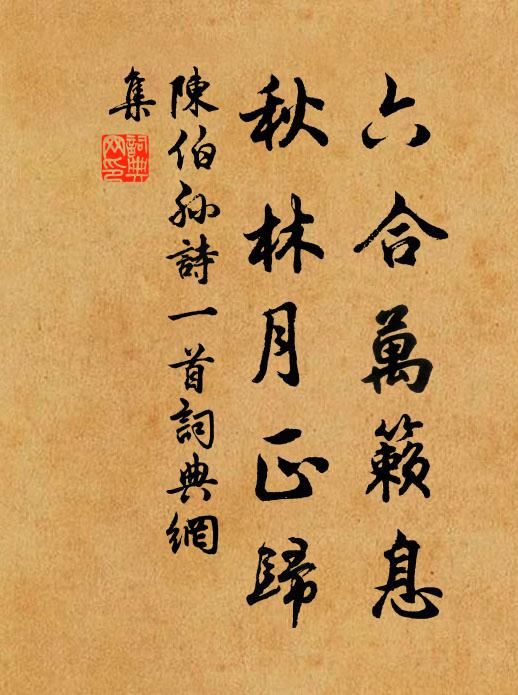 六合萬籟息
秋林月正歸
陳伯孫詩一首詞典網
集
詞典
网印